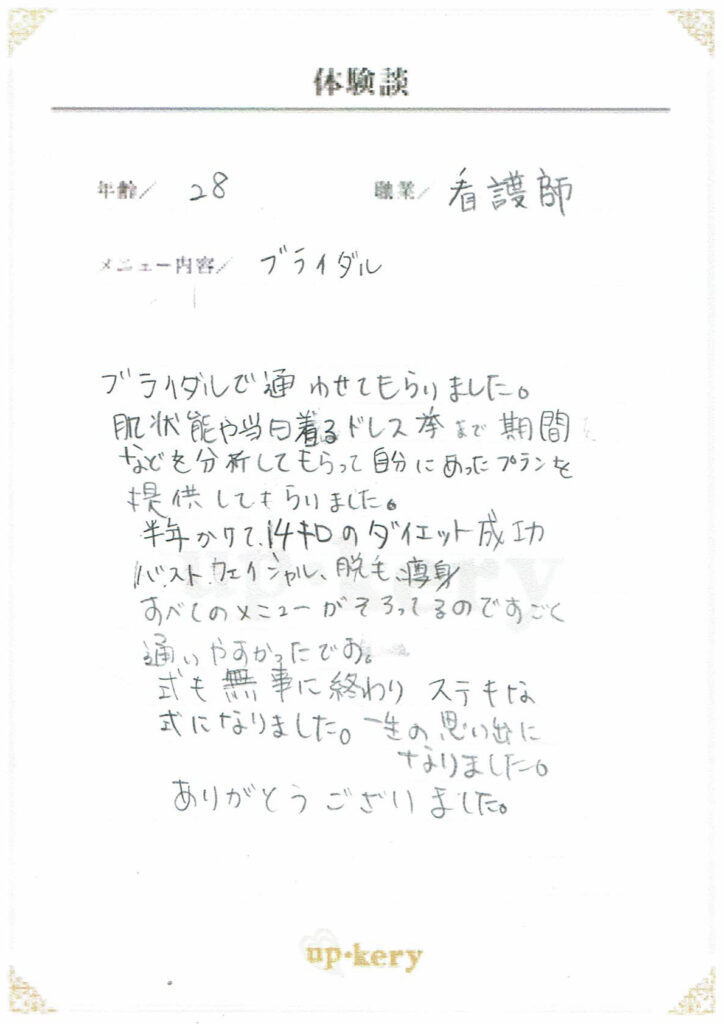 体験談
年齢/ 28 職業/ 看護師
メニュー内容/ ブライダル
ブライダルで通わせてもらいました。
肌状態や当日着るドレス 挙まで期間
などを分析してもらって自分にあったプランを
提供してもらいました。
半年かけて、14キロのダイエット成功
バスト、フェイシャル、脱毛、痩身
すべてのメニューがそろってるのですごく
通いやすかったです。
式も無事に終わり ステキな
式になりました。一生の思い出に
なりました。
ありがとうございました。
up・kery